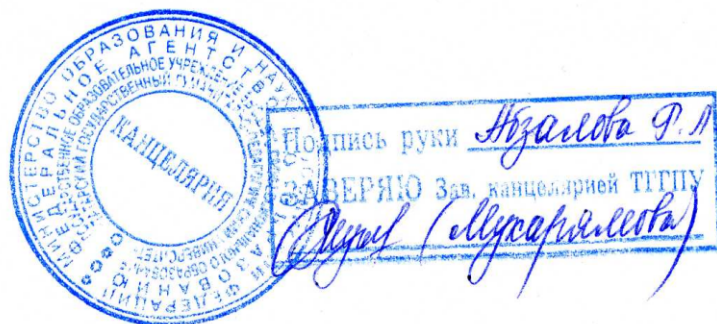 МИНИСТЕРСТВО ОБРАЗОВАНИЯ И НАУКИ
ФЕДЕРАЦИИ
ФЕДЕРАЛЬНОЕ АГЕНТСТВО
ОБРАЗОВАНИЮ
ГОСУДАРСТВЕННОЕ ОБРАЗОВАТЕЛЬНОЕ УЧРЕЖДЕНИЕ
ГОСУДАРСТВЕННЫЙ
КАНЦЕЛЯРИЯ
Подпись руки Абзалова Р.А
ЗАВЕРЯЮ Зав. канцелярией ТГГПУ
(Мукарямова)